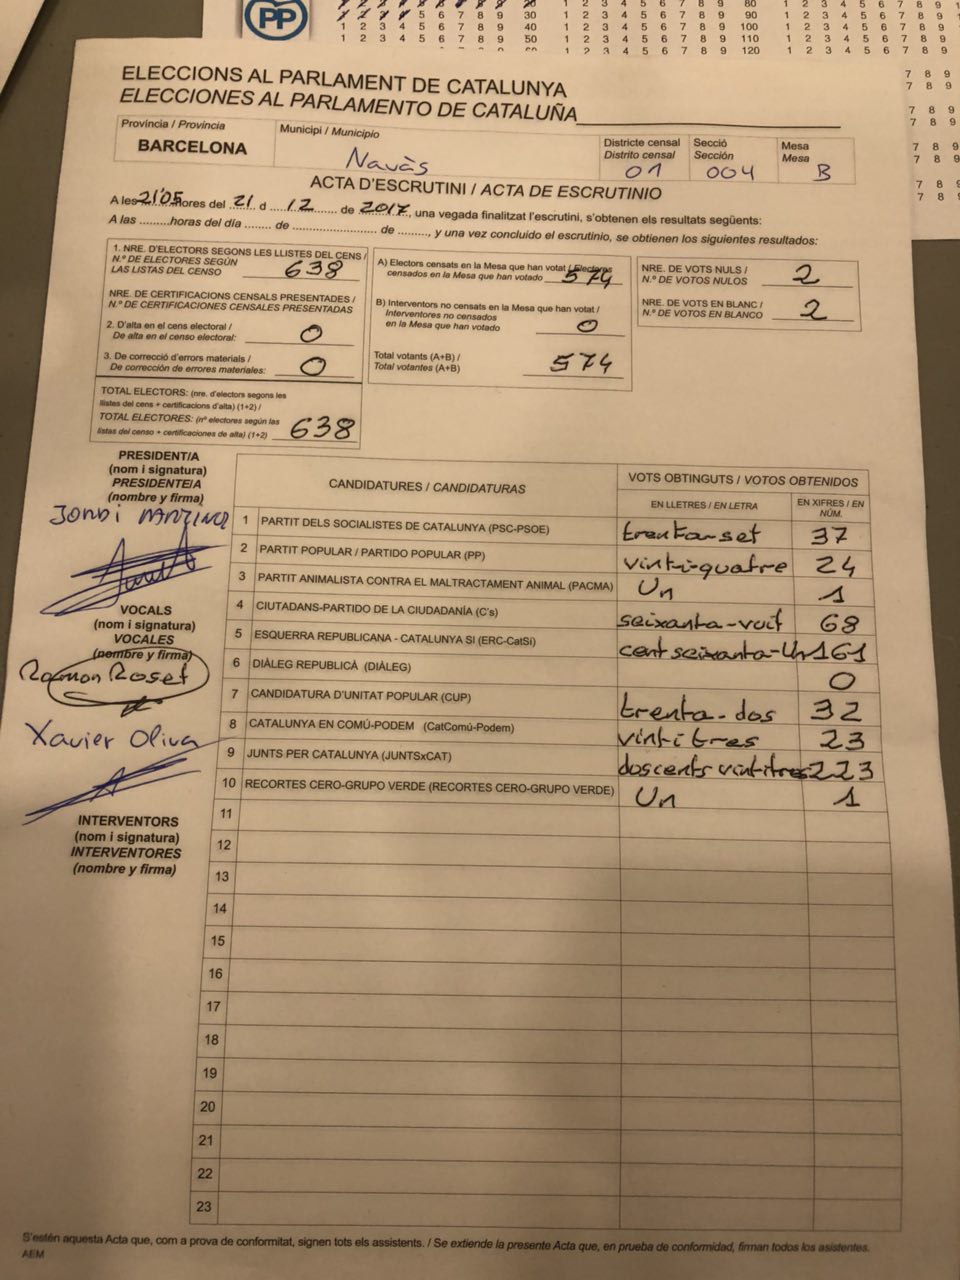 PP
ELECCIONS AL PARLAMENT DE CATALUNYA
ELECCIONES AL PARLAMENTO DE CATALUÑA
Província / Provincia
BARCELONA
Municipi / Municipio
Navàs
Districte censal
Distrito censal
01
Secció
Sección
004
Mesa
Mesa
B
ACTA D'ESCRUTINI / ACTA DE ESCRUTINIO
A les 21'05 hores del 21 d 12 de 2017, una vegada finalitzat l'escrutini, s'obtenen els resultats següents:
A las .........horas del día ........ de .............................. de ........, y una vez concluido el escrutinio, se obtienen los siguientes resultados:
1. NRE. D'ELECTORS SEGONS LES LLISTES DEL CENS /
N.º DE ELECTORES SEGÚN
LAS LISTAS DEL CENSO 638
NRE. DE CERTIFICACIONS CENSALS PRESENTADES /
N.º DE CERTIFICACIONES CENSALES PRESENTADAS
2. D'alta en el cens electoral /
De alta en el censo electoral: 0
3. De correcció d'errors materials /
De corrección de errores materiales: 0
TOTAL ELECTORS: (nre. d'electors segons les
llistes del cens + certificacions d'alta) (1+2) /
TOTAL ELECTORES: (nº electores según las
listas del censo + certificaciones de alta) (1+2) 638
A) Electors censats en la Mesa que han votat / Electores
censados en la Mesa que han votado 574
B) Interventors no censats en la Mesa que han votat /
Interventores no censados
en la Mesa que han votado 0
Total votants (A+B) /
Total votantes (A+B) 574
NRE. DE VOTS NULS /
N.º DE VOTOS NULOS 2
NRE. DE VOTS EN BLANC /
N.º DE VOTOS EN BLANCO 2
PRESIDENT/A
(nom i signatura)
PRESIDENTE/A
(nombre y firma)
VOCALS
(nom i signatura)
VOCALES
(nombre y firma)
Ramon Roset
Xavier Oliva
INTERVENTORS
(nom i signatura)
INTERVENTORES
(nombre y firma)
CANDIDATURES / CANDIDATURAS
VOTS OBTINGUTS / VOTOS OBTENIDOS
EN LLETRES / EN LETRA
EN XIFRES / EN
NÚM.
1 PARTIT DELS SOCIALISTES DE CATALUNYA (PSC-PSOE) trenta-set 37
2 PARTIT POPULAR / PARTIDO POPULAR (PP) vint-i-quatre 24
3 PARTIT ANIMALISTA CONTRA EL MALTRACTAMENT ANIMAL (PACMA) Un 1
4 CIUTADANS-PARTIDO DE LA CIUDADANÍA (C's) seixanta-vuit 68
5 ESQUERRA REPUBLICANA - CATALUNYA SI (ERC-CatSí) cent seixanta-Un 161
6 DIÀLEG REPUBLICÀ (DIÀLEG) 0
7 CANDIDATURA D'UNITAT POPULAR (CUP) trenta-dos 32
8 CATALUNYA EN COMÚ-PODEM (CatComú-Podem) vintitres 23
9 JUNTS PER CATALUNYA (JUNTSxCAT) doscents vintitres 223
10 RECORTES CERO-GRUPO VERDE (RECORTES CERO-GRUPO VERDE) Un 1
11
12
13
14
15
16
17
18
19
20
21
22
23
S'estén aquesta Acta que, com a prova de conformitat, signen tots els assistents. / Se extiende la presente Acta que, en prueba de conformidad, firman todos los asistentes.
AEM